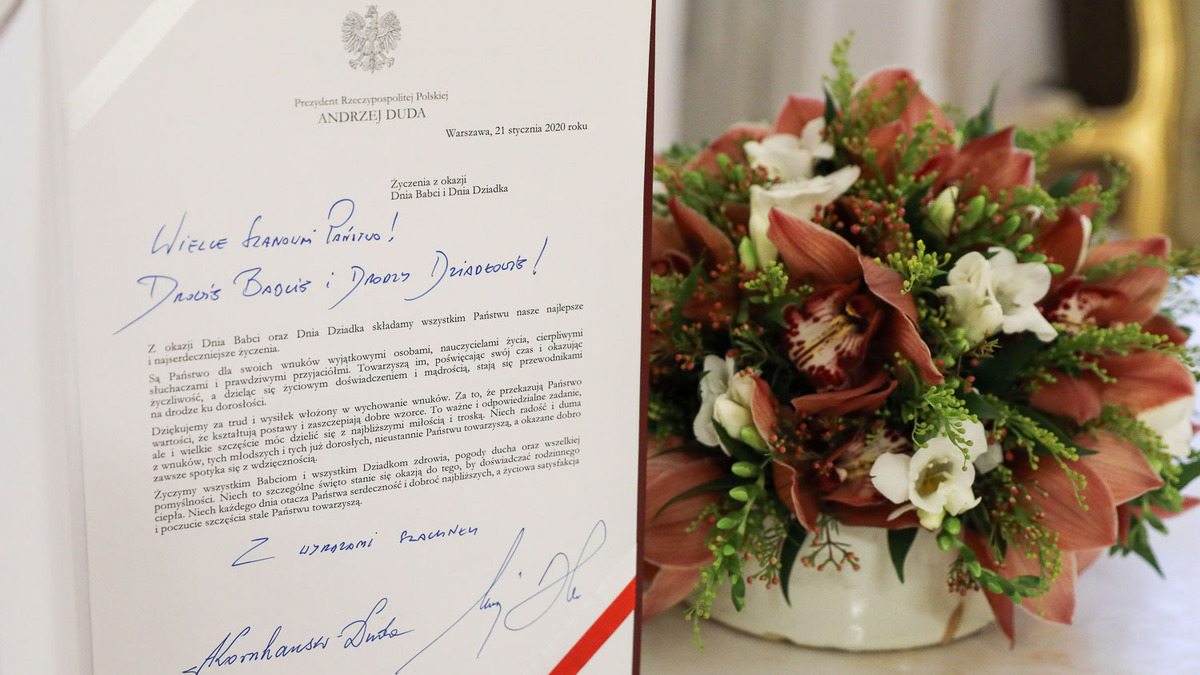 Prezydent Rzeczypospolitej Polskiej
ANDRZEJ DUDA
Warszawa, 21 stycznia 2020 roku
Życzenia z okazji
Dnia Babci i Dnia Dziadka
WIELCE SZANOWNI PAŃSTWO!
DROGIE BABCIE I DRODZY DZIADKOWIE!
Z okazji Dnia Babci oraz Dnia Dziadka składamy wszystkim Państwu nasze najlepsze
i najserdeczniejsze życzenia.
Są Państwo dla swoich wnuków wyjątkowymi osobami, nauczycielami życia, cierpliwymi
słuchaczami i prawdziwymi przyjaciółmi. Towarzyszą im, poświęcając swój czas i okazując
życzliwość, a dzieląc się życiowym doświadczeniem i mądrością, stają się przewodnikami
na drodze ku dorosłości.
Dziękujemy za trud i wysiłek włożony w wychowanie wnuków. Za to, że przekazują Państwo
wartości, że kształtują postawy i zaszczepiają dobre wzorce. To ważne i odpowiedzialne zadanie,
ale i wielkie szczęście móc dzielić się z najbliższymi miłością i troską. Niech radość i duma
z wnuków, tych młodszych i tych już dorosłych, nieustannie Państwu towarzyszą, a okazane dobro
zawsze spotyka się z wdzięcznością.
Życzymy wszystkim Babciom i wszystkim Dziadkom zdrowia, pogody ducha oraz wszelkiej
pomyślności. Niech to szczególne święto stanie się okazją do tego, by doświadczać rodzinnego
ciepła. Niech każdego dnia otacza Państwa serdeczność i dobroć najbliższych, a życiowa satysfakcja
i poczucie szczęścia stale Państwu towarzyszą.
Z WYRAZAMI SZACUNKU
AKornhauser-Duda